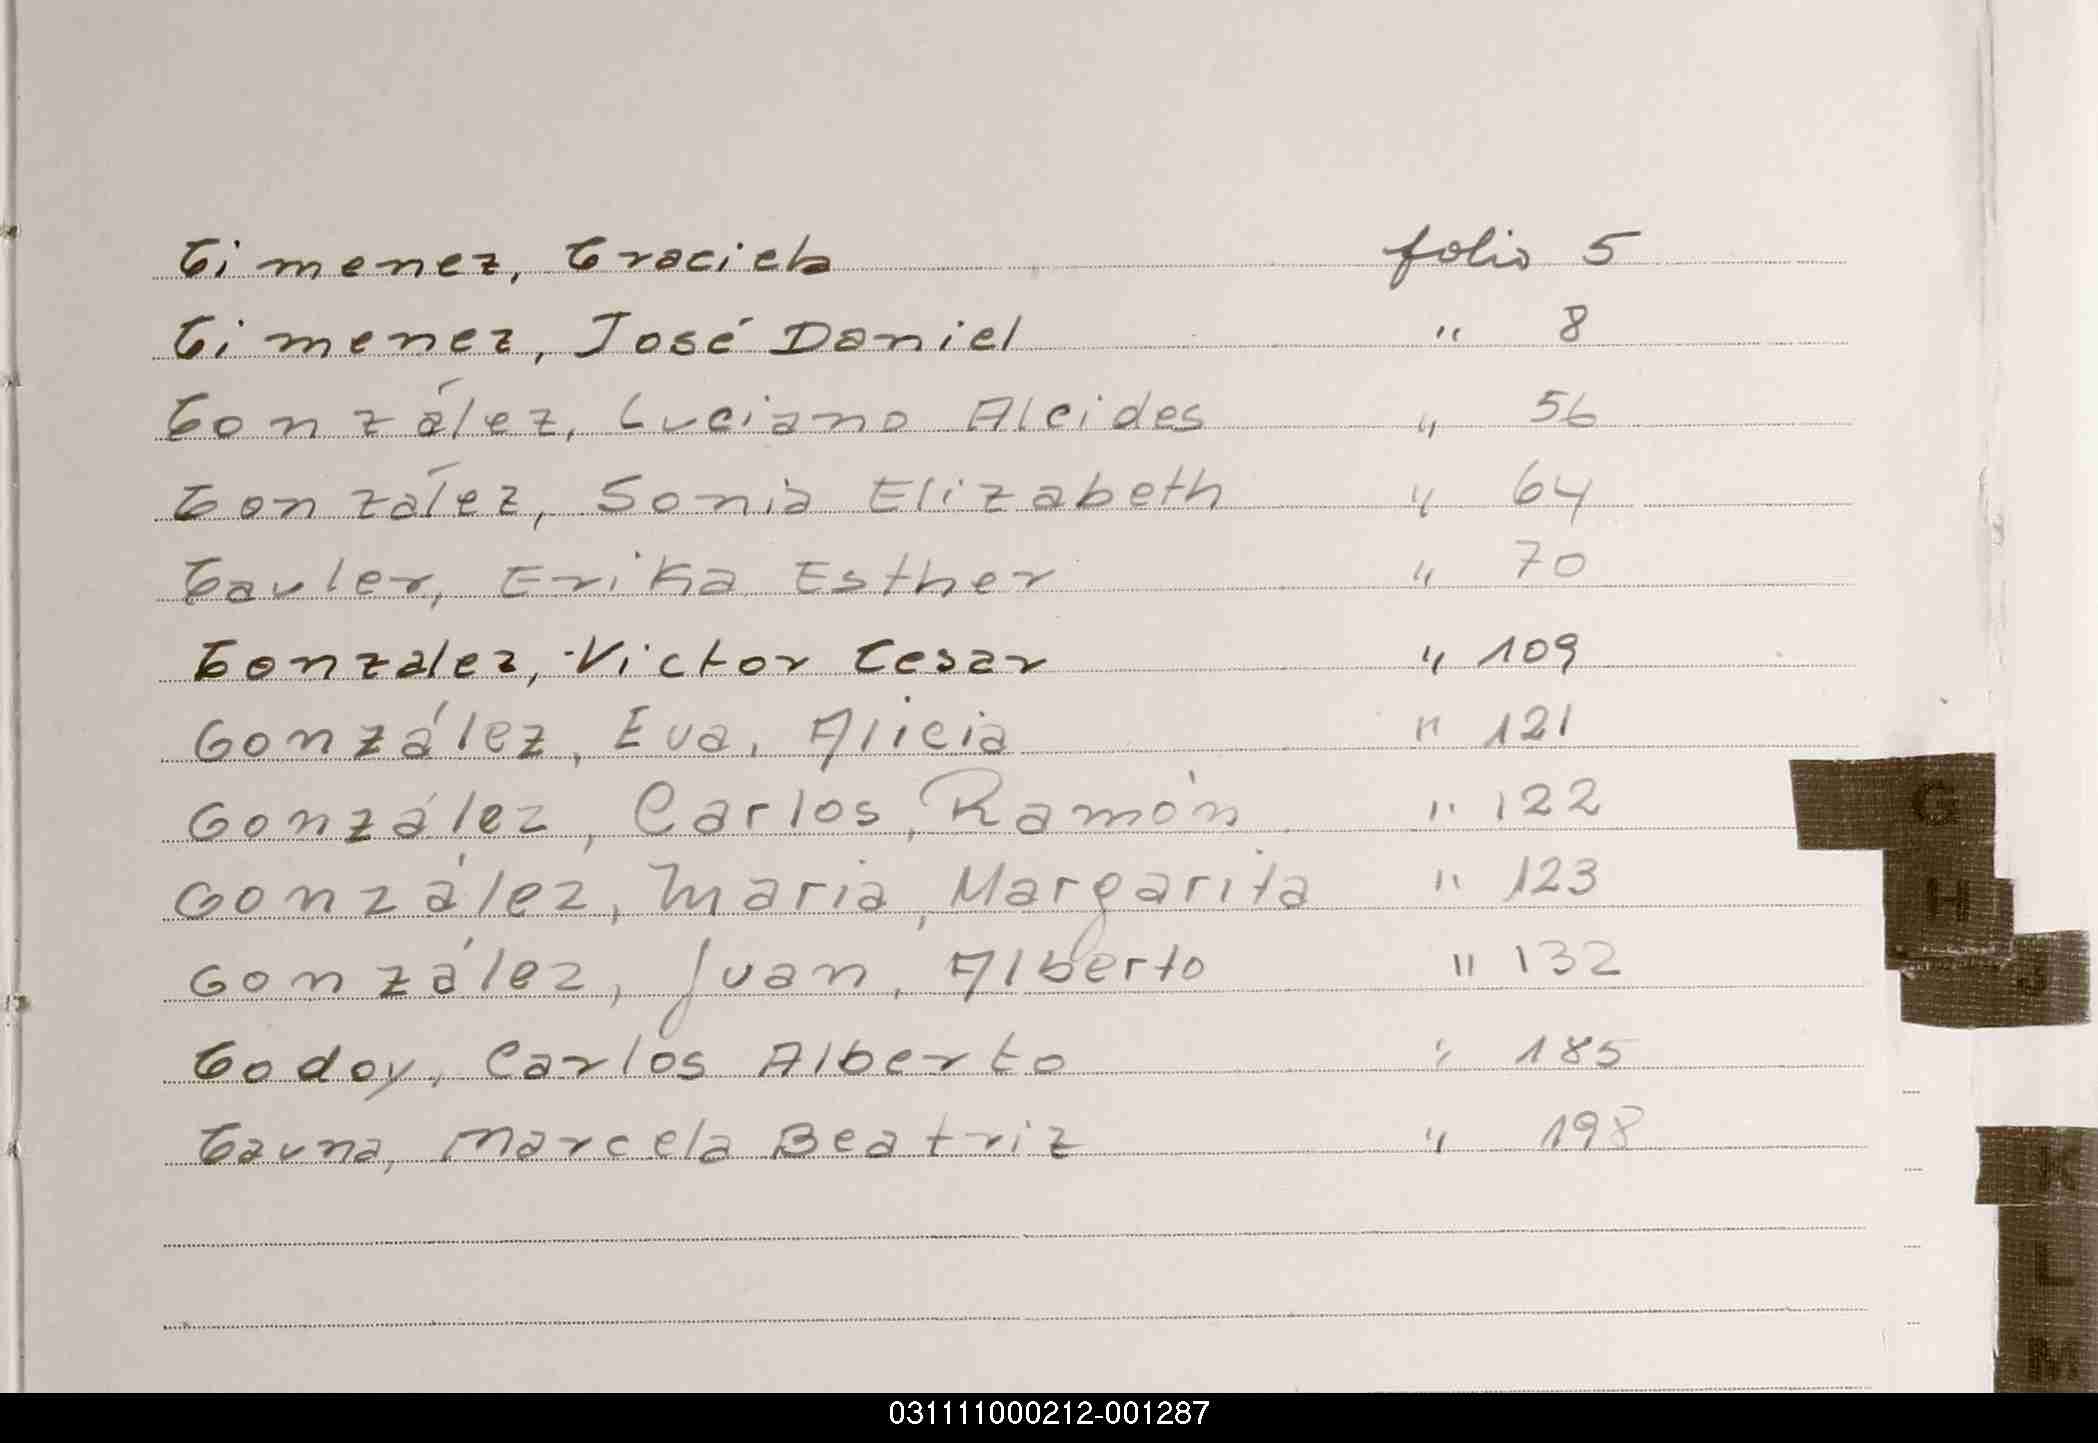 Gimenez, Graciela folio 5
Gimenez, José Daniel " 8
González, Luciano Alcides " 56
González, Sonia Elizabeth " 64
Gauler, Erika Esther " 70
Gonzalez, Victor Cesar " 109
González, Eva, Alicia " 121
González, Carlos, Ramón " 122
González, Maria, Margarita " 123
González, Juan, Alberto " 132
Godoy, Carlos Alberto " 185
Gauna, Marcela Beatriz " 198
G
H
J
K
L
M
031111000212-001287